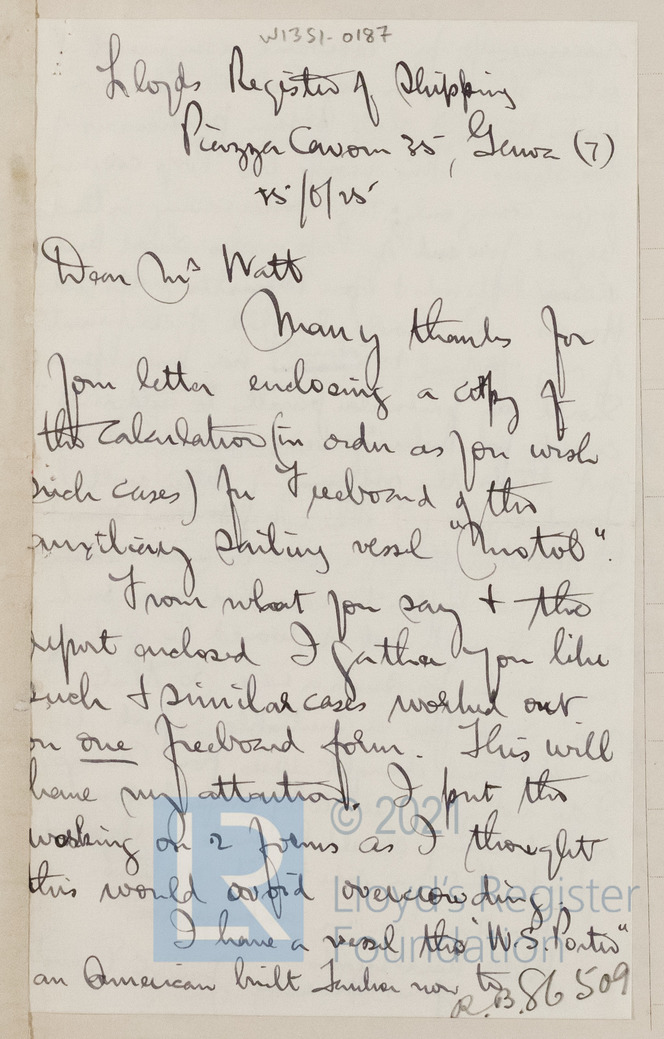 W1351-0187
Lloyds Register of Shipping
Piazza Cavour 35, Genoa (7)
Dear Mr Watt
Many thanks for
your letter enclosing a copy of
the calculation (in order as you wish
such cases) for Freeboard of the
auxiliary sailing vessel
From what you say & the
report enclosed I gather you like
such & similar cases worked out
on one freeboard form. This will
have my attention. I put the
working on 2 forms as I thought
this would avoid overcrowding.
I have a vessel the "W.S. Porter"
an American built Tanker now to
R.B. 86509
© 2021
LR
Lloyd's Register
Foundation